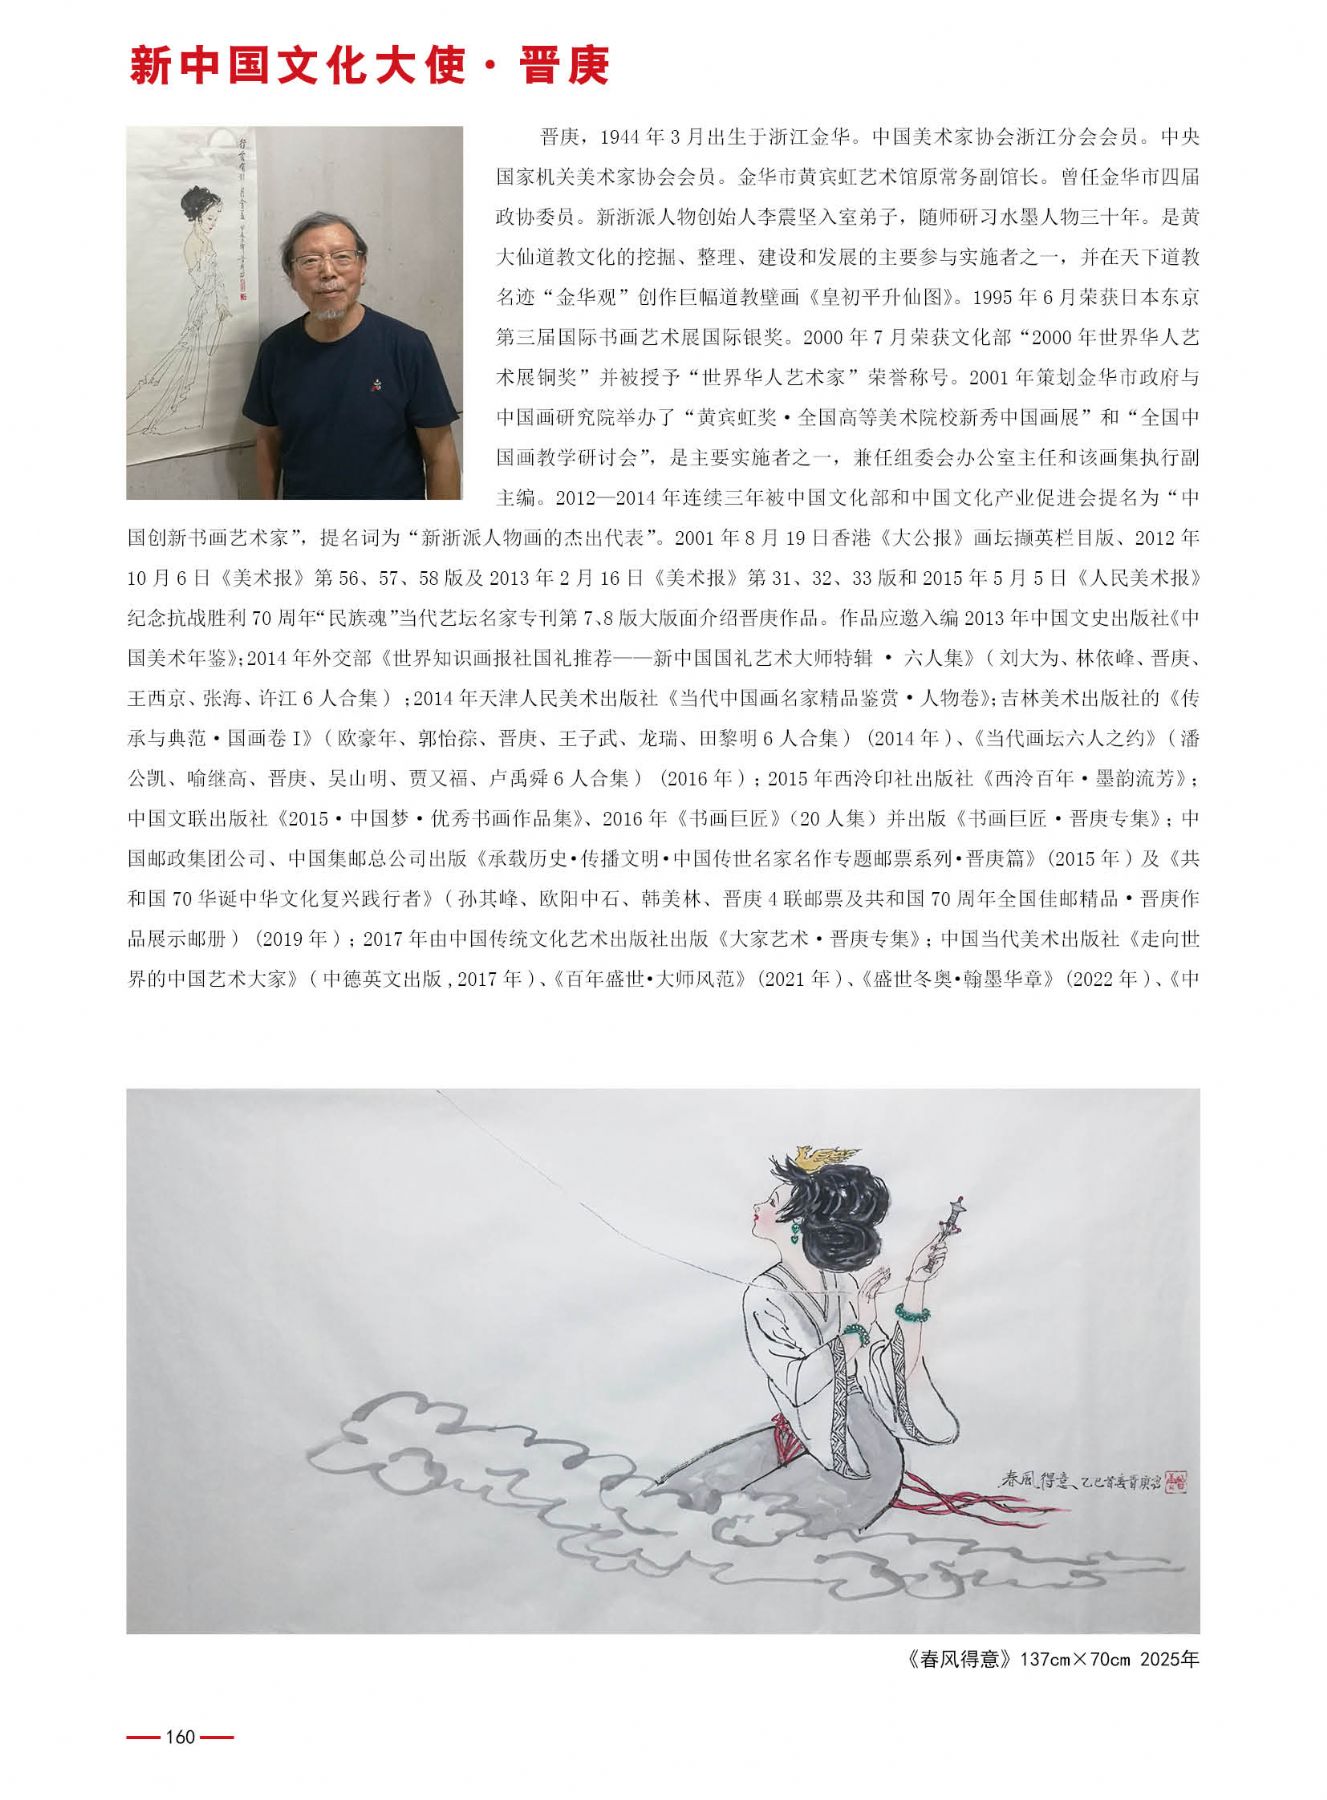 新中国文化大使·晋庚
晋庚，1944 年 3 月出生于浙江金华。中国美术家协会浙江分会会员。中央
国家机关美术家协会会员。金华市黄宾虹艺术馆原常务副馆长。曾任金华市四届
政协委员。新浙派人物创始人李震坚入室弟子，随师研习水墨人物三十年。是黄
大仙道教文化的挖掘、整理、建设和发展的主要参与实施者之一，并在天下道教
名迹“金华观”创作巨幅道教壁画《皇初平升仙图》。1995 年 6 月荣获日本东京
第三届国际书画艺术展国际银奖。2000 年 7 月荣获文化部“2000 年世界华人艺
术展铜奖”并被授予“世界华人艺术家”荣誉称号。2001 年策划金华市政府与
中国画研究院举办了“黄宾虹奖·全国高等美术院校新秀中国画展”和“全国中
国画教学研讨会”，是主要实施者之一，兼任组委会办公室主任和该画集执行副
主编。2012—2014 年连续三年被中国文化部和中国文化产业促进会提名为“中
国创新书画艺术家”，提名词为“新浙派人物画的杰出代表”。2001 年 8 月 19 日香港《大公报》画坛撷英栏目版、2012 年
10 月 6 日《美术报》第 56、57、58 版及 2013 年 2 月 16 日《美术报》第 31、32、33 版和 2015 年 5 月 5 日《人民美术报》
纪念抗战胜利 70 周年“民族魂”当代艺坛名家专刊第 7、8 版大版面介绍晋庚作品。作品应邀入编 2013 年中国文史出版社《中
国美术年鉴》；2014 年外交部《世界知识画报社国礼推荐——新中国国礼艺术大师特辑 · 六人集》（刘大为、林依峰、晋庚、
王西京、张海、许江 6 人合集）；2014 年天津人民美术出版社《当代中国画名家精品鉴赏·人物卷》；吉林美术出版社的《传
承与典范·国画卷 I》（欧豪年、郭怡孮、晋庚、王子武、龙瑞、田黎明 6 人合集）(2014 年)、《当代画坛六人之约》（潘
公凯、喻继高、晋庚、吴山明、贾又福、卢禹舜 6 人合集）(2016 年)；2015 年西泠印社出版社《西泠百年·墨韵流芳》；
中国文联出版社《2015·中国梦·优秀书画作品集》、2016 年《书画巨匠》（20 人集）并出版《书画巨匠·晋庚专集》；中
国邮政集团公司、中国集邮总公司出版《承载历史·传播文明·中国传世名家名作专题邮票系列·晋庚篇》(2015 年) 及《共
和国 70 华诞中华文化复兴践行者》（孙其峰、欧阳中石、韩美林、晋庚 4 联邮票及共和国 70 周年全国佳邮精品·晋庚作
品展示邮册）(2019 年)；2017 年由中国传统文化艺术出版社出版《大家艺术·晋庚专集》；中国当代美术出版社《走向世
界的中国艺术大家》（中德英文出版 ,2017 年）、《百年盛世·大师风范》(2021 年)、《盛世冬奥·翰墨华章》(2022 年)、《中
春风得意 乙巳首夏晋庚写
《春风得意》137cm×70cm 2025年
160